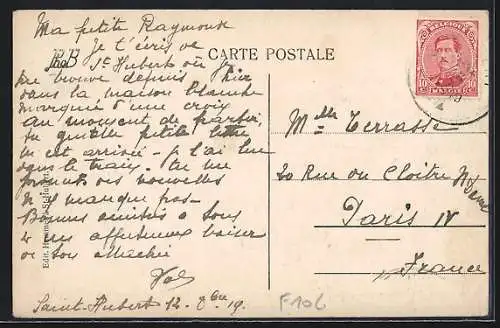 Ma petite Raymonde
Je t'écris de
St Hubert où je
me trouve depuis hier
dans la maison blanche
marquée d'une croix
Au moment de partir,
ta gentille petite lettre
m'est arrivée - je l'ai lue
dans le train. Tu me
promets des nouvelles
n'y manque pas -
Bonnes amitiés à tous
& un affectueux baiser
de ton attachée
Saint-Hubert 12. 8bre 19.
PhoB
CARTE POSTALE
Edit.
BELGIQUE
10 10
BELGIË
Melle Terrasse
20 Rue du Cloître N. Dame
Paris IV
France
F106